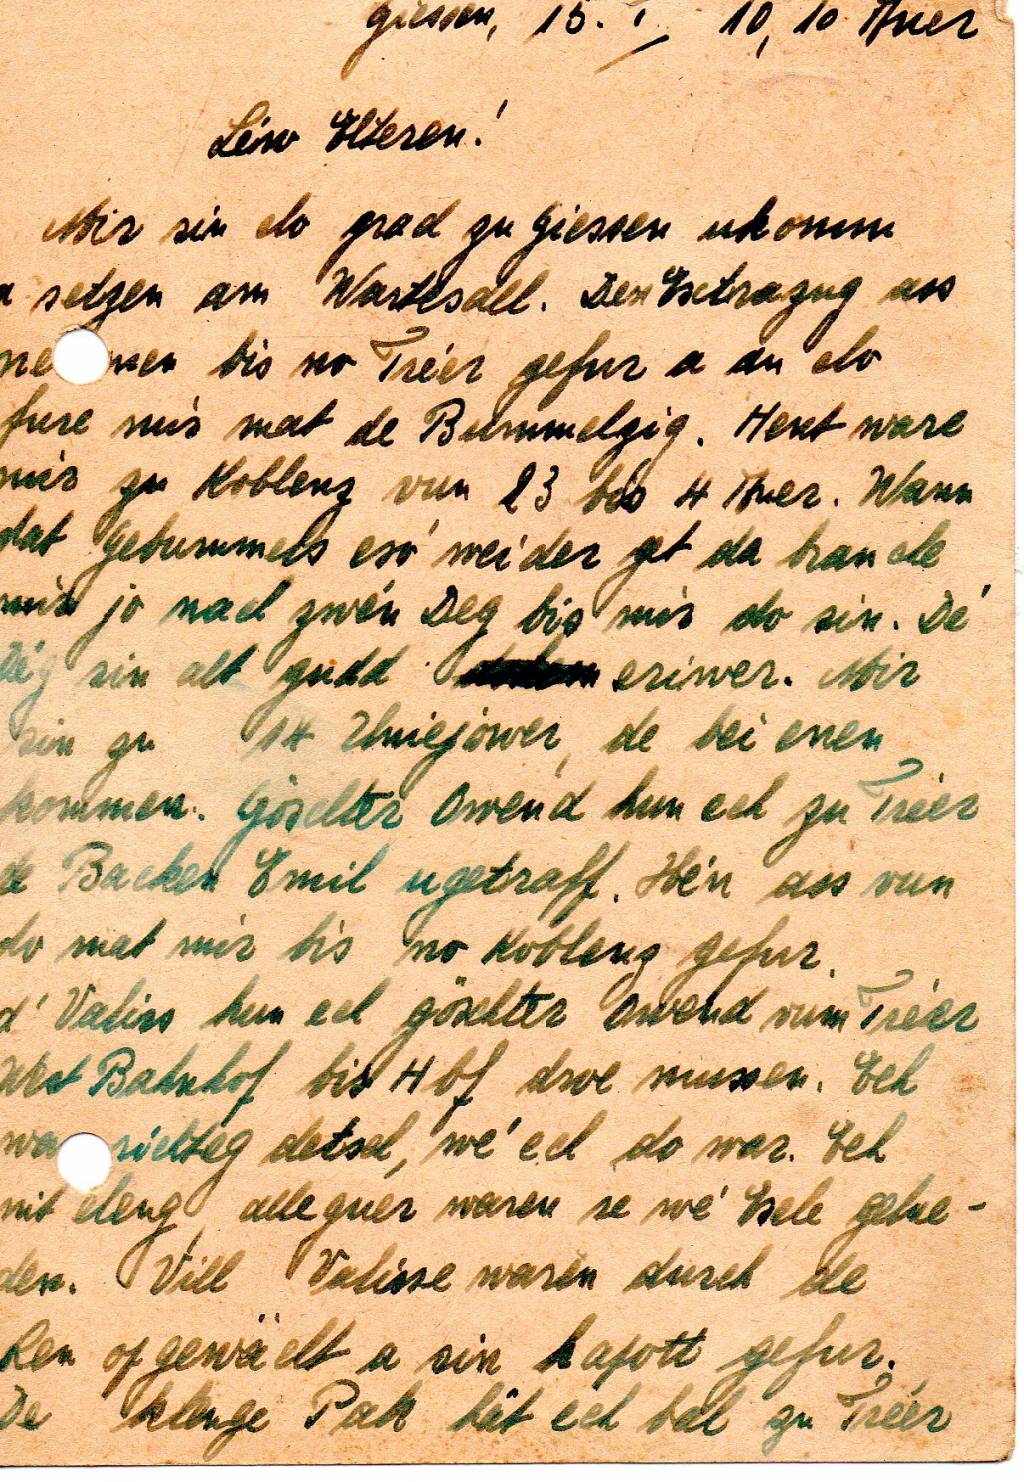 Giessen, 15. I 10,10 Auer
Léiw Elteren!
Mir sin elo grad zu Giessen ukomm
a setzen am Wartesall. Den Extrazug ass
nemmen bis no Tréier gefur a du elo
fure mir mat de Bummelzig. Hent ware
mir zu Koblenz vun 23 bis 4 Auer. Wann
dat Gebummels esó weider get da brauche
mir jo nach zwén Deg bis mir do sin. Dé
Dég sin alt gudd eriwer. Mir
sin zu 14 de bei enen
kommen. Göschter Owend hun ech zu Tréier
de Backen Emil ugetraff. Hén ass vun
do mat mir bis no Koblenz gefur.
d' Valiss hun ech göschter Owend vum Tréier
West Bahnhof bis Hbf droe mussen. Ech
war richteg detsch, wé ech do war. Ech
nit eleng, alleguer waren se wé Esele gelue-
den. Vill Valisse waren durch de
Ren opgeweecht a sin kapott gefur.
De klenge Pak hät ech bal zu Tréier